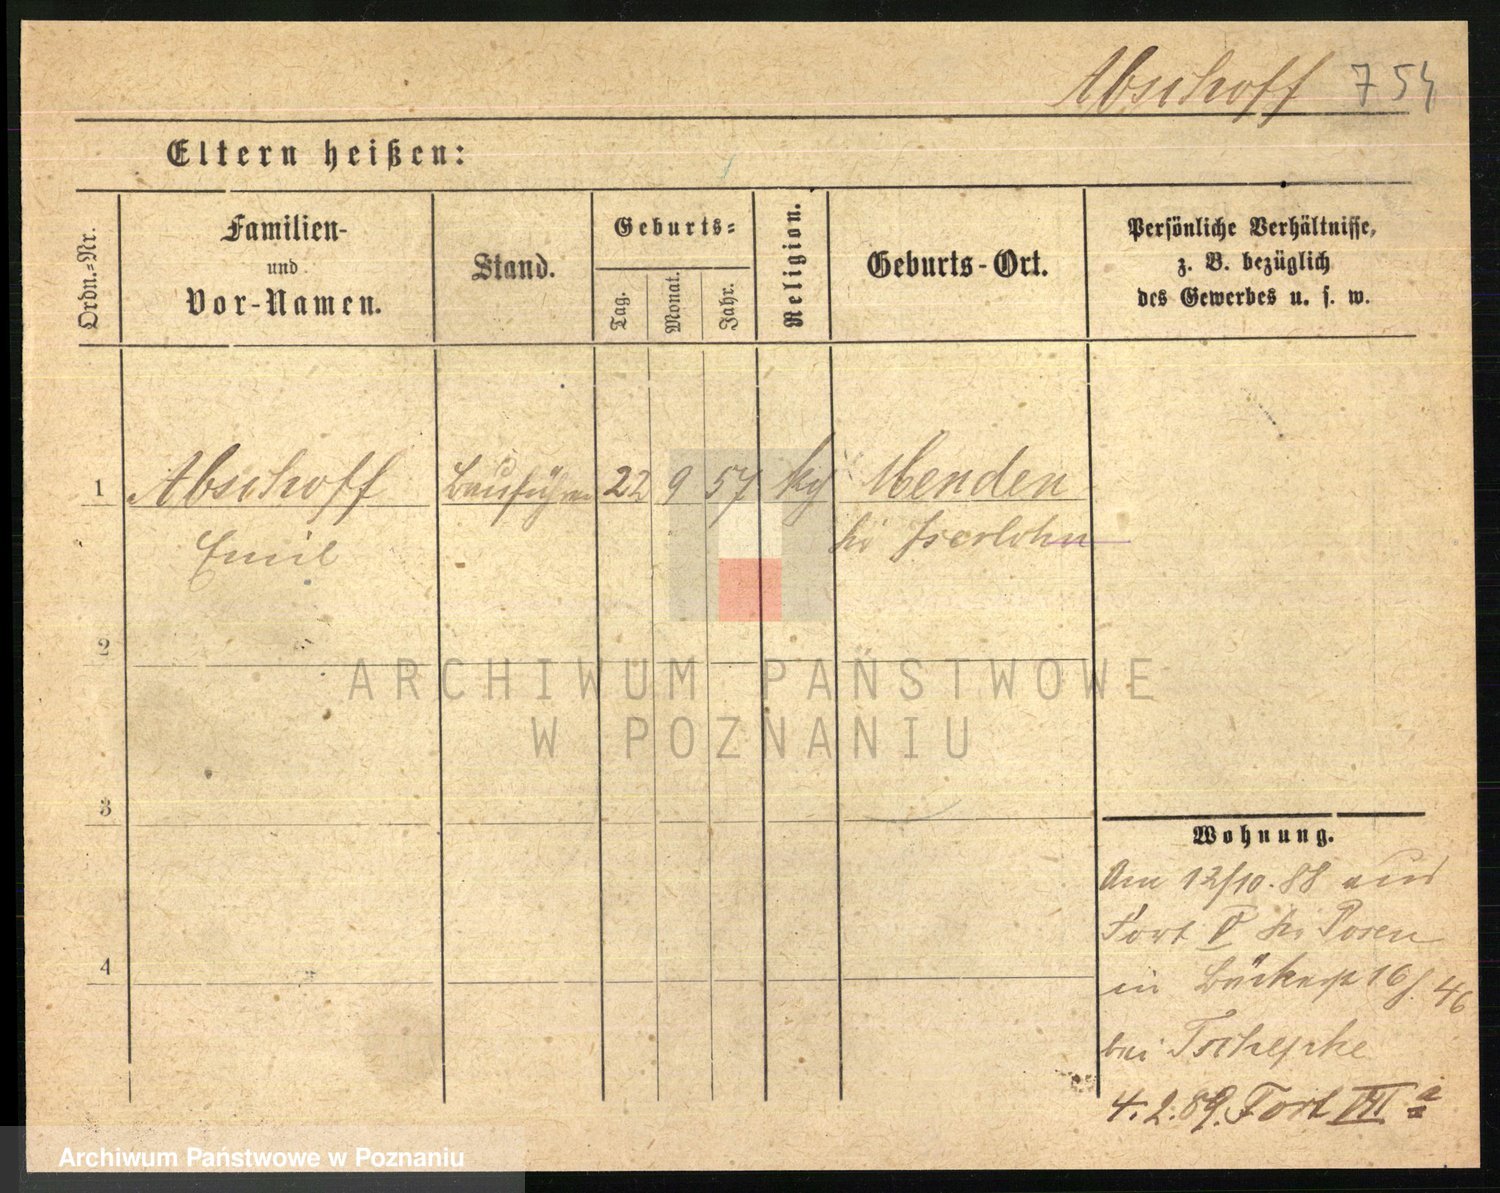 Abschoff 754
Eltern heißen:
Ordn.-Nr.
Familien-
und
Vor-Namen.
Stand.
Geburts-
Tag.
Monat.
Jahr.
Religion.
Geburts-Ort.
Persönliche Verhältnisse,
z. B. bezüglich
des Gewerbes u. s. w.
1 Abschoff Bauführer 22 9 57 Menden
Emil bei Iserlohn
2
3
4
Wohnung.
Am 12/10.88 aus
Fort V bei Posen
in 16/ 46
bei Tschepke
4.2.89. Fort VIIa
ARCHIWUM PAŃSTWOWE
W POZNANIU
Archiwum Państwowe w Poznaniu